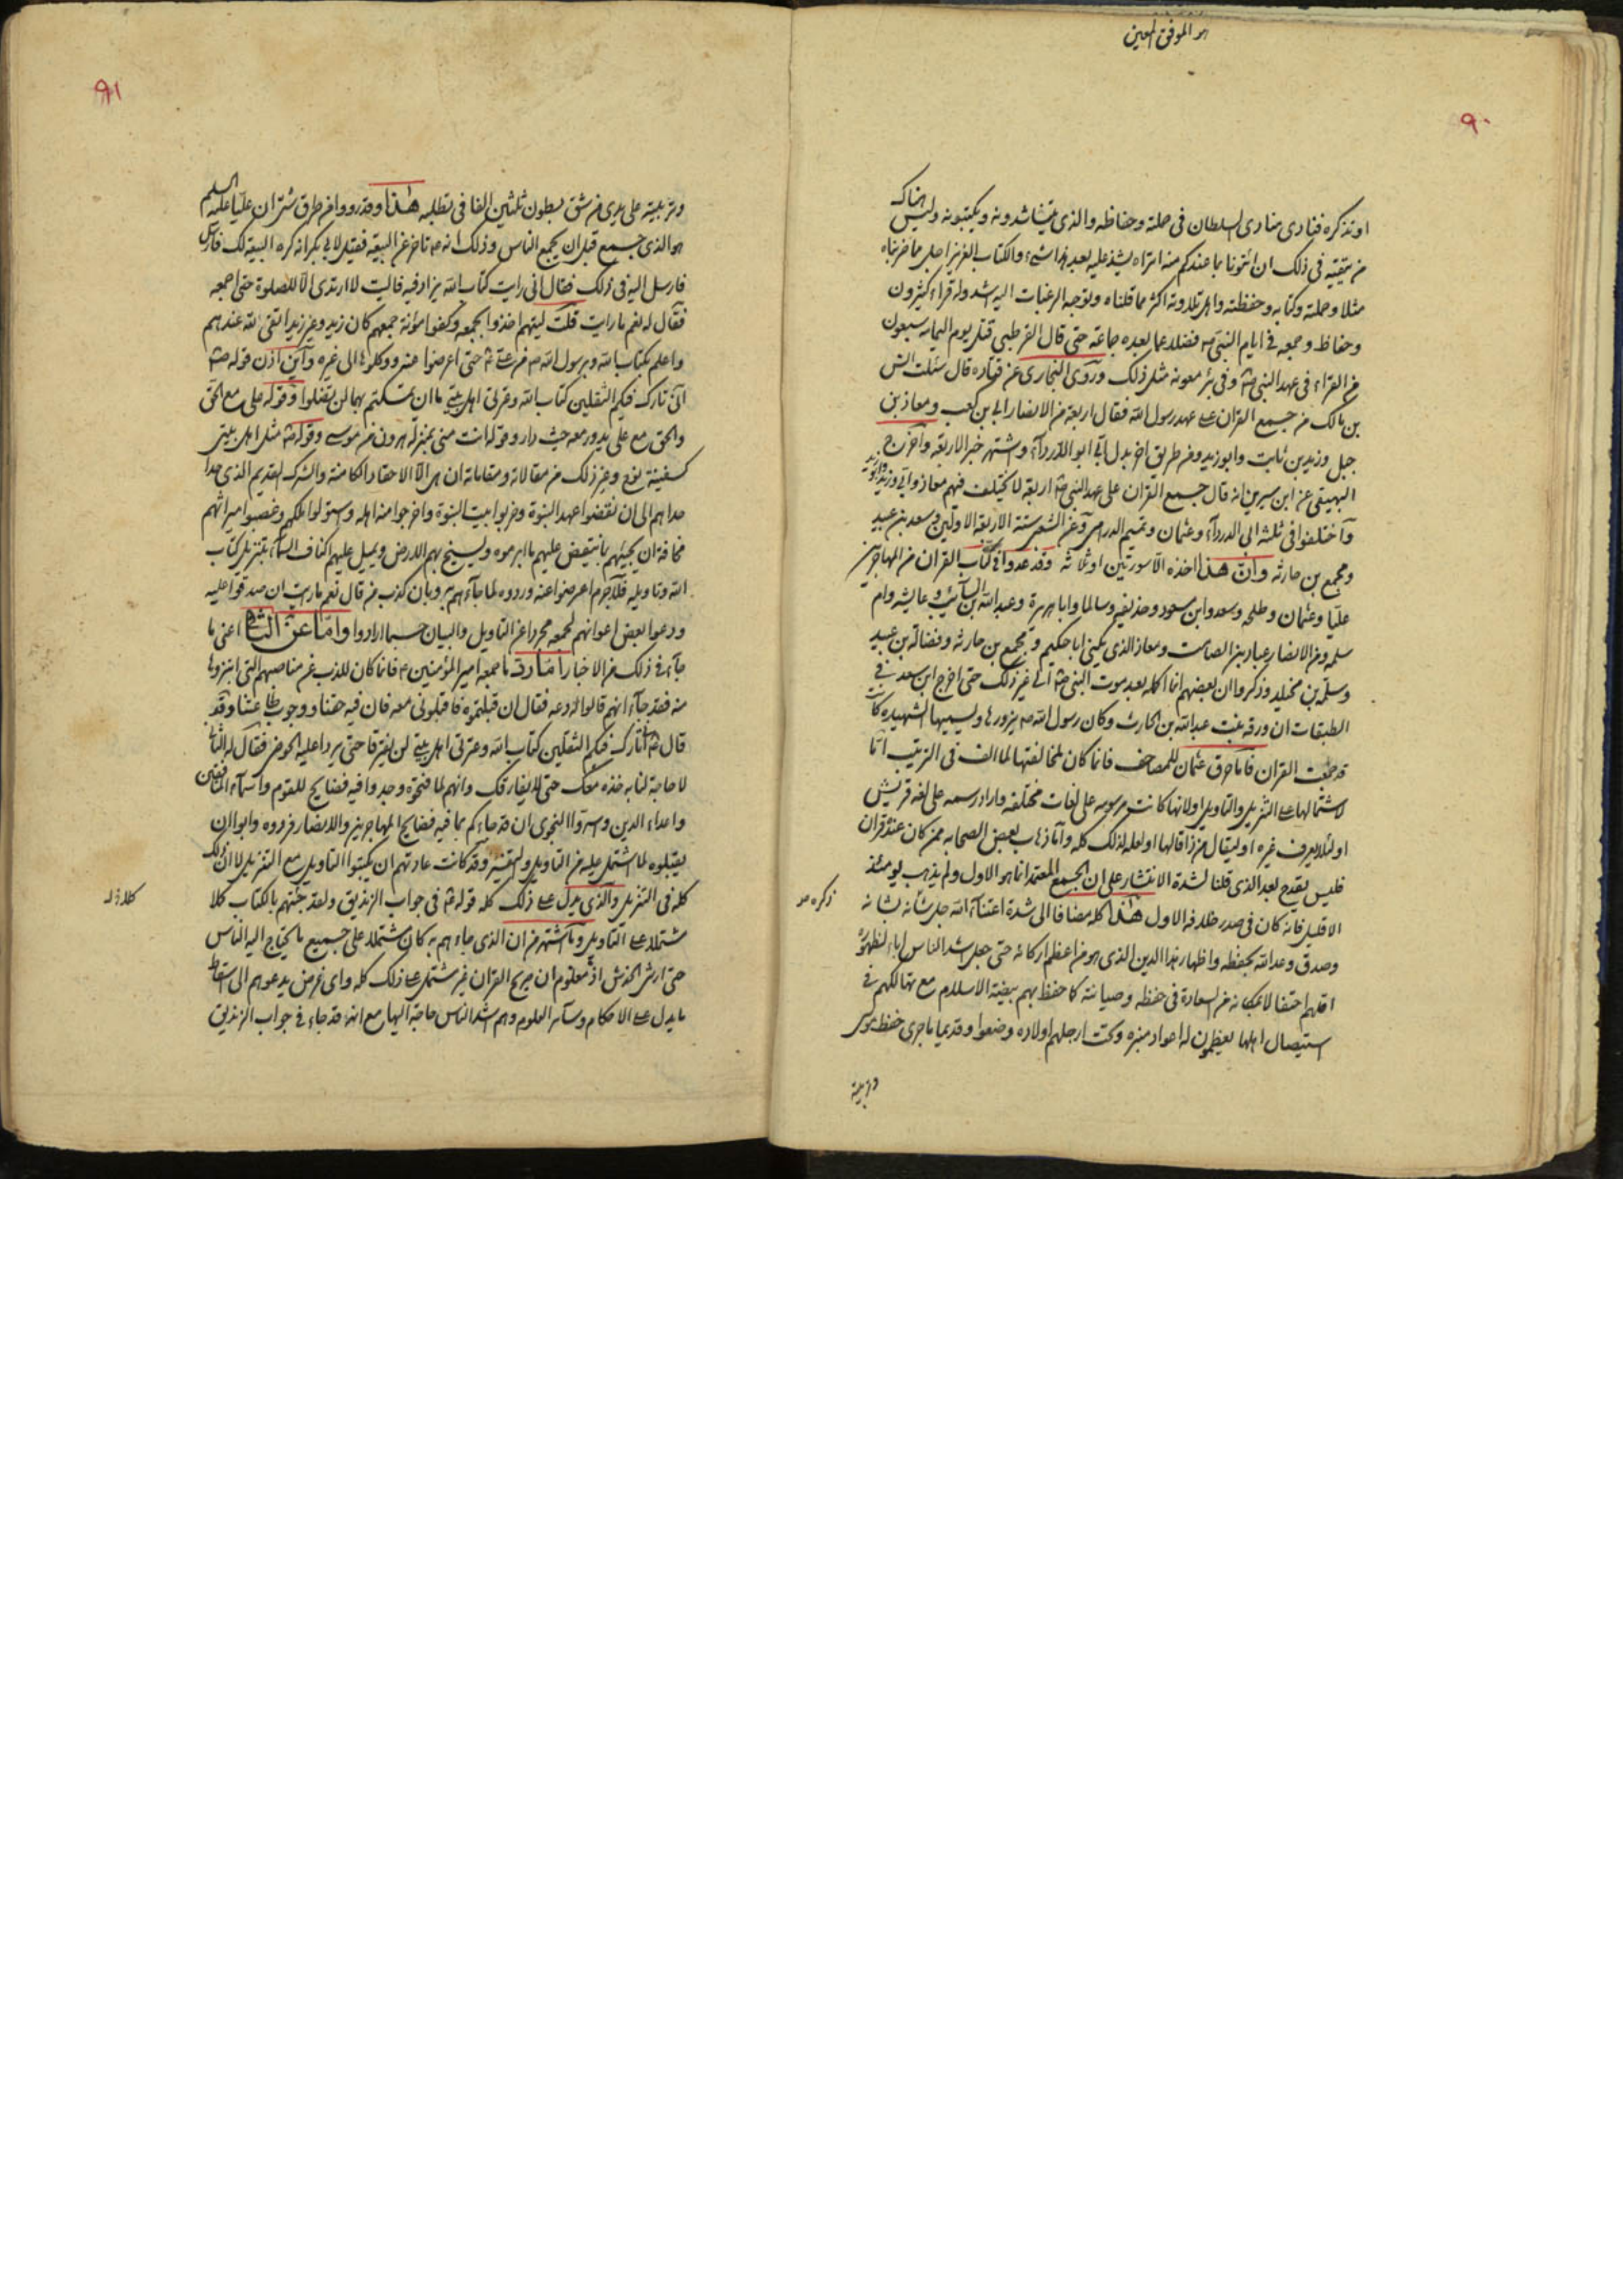 هو الموفق المعین
٩٠
او تذکره فنادی منادی السلطان فی حملته وحفاظه والذی یتناشدونه ویکتبونه ولیس هناک
من یتقیه فی ذلک ان ائتونا بما عندکم منه اتراه یشذ علیه بعد هذا شیء والکتاب العزیز اجل مما ضربناه
مثلا وحملته وکتابه وحفظته واهل تلاوته اکثر مما قلناه وتوجه الرغبات الیه اشد وله قراء کثیرون
وحفاظ وجمعه فی ایام النبی ص فضلا عما بعده جماعة حتی قال القرطبی قتل یوم الیمامه سبعون
من القراء وفی عهد النبی ص فی بئر معونه مثل ذلک وروی البخاری عن قتاده قال سئلت انس
بن مالک من جمع القران علی عهد رسول الله فقال اربعة من الانصار ابی بن کعب ومعاذ بن
جبل وزید بن ثابت وابو زید ومن طریق اخر بدل ابی ابو الدرداء واشتهر خبر الاربعه واخرج
البیهقی عن ابن سیرین انه قال جمع القران علی عهد النبی ص اربعة لا یختلف فیهم معاذ وابی وزید وابو زید
واختلفوا فی ثلثة ابی الدرداء وعثمان وتمیم الداری وعن الشعبی ستة الاربعه الاولین وسعد بن عبید
ومجمع بن حارثه وان هذا اخذه الا سورتین او ثلاثه وقد عدوا فی کتاب القران من المهاجرین
علیا وعثمان وطلحه وسعد وابن مسعود وحذیفه وسالما وابا هریرة وعبد الله بن السائب وعایشه وام
سلمه ومن الانصار عباد بن الصامت ومعاذ الذی یکنی ابا حکیم ومجمع بن حارثه وفضالة بن عبید
وسلمه بن مخلد وذکروا ان بعضهم انما اکمله بعد موت النبی ص الی غیر ذلک حتی اخرج ابن سعد فی
الطبقات ان ورقه بنت عبد الله بن الحارث وکان رسول الله ص یزورها ویسمیها الشهیده کانت
قد جمعت القران فاما حرق عثمان للمصاحف فانما کان لمخالفتها لما الف فی الترتیب اما
لاشتمالها علی التنزیل والتاویل او لانها کانت مرسومه علی لغات مختلفه واراد رسمه علی لغه قریش
او لئلا یعرف غیره او لیقال من ذا قالها او لعله لذلک کله واما ذهاب بعض الصحابه ممن کان عنده قران
فلیس یقدح بعد الذی قلنا لشدة الانتشار علی ان الجمع المعتمد انما هو الاول ولم یذهب یومئذ
الا قلیل فانه کان فی صدر خلافه الاول هذا کله مضافا الی شدة اعتناء الله جل شانه بشانه
ذکره ص
وصدق وعد الله بحفظه واظهار هذا الدین الذی هو من اعظم ارکانه حتی جعل اشد الناس اباء لظهوره
اقلهم احتفالا بمکانه من السعادة فی حفظه وصیانته کما حفظ بهم بیضة الاسلام مع تهالکهم فی
استیصال اهلها یعظمون له اعواد منبره وتحت ارجلهم اولاده وضعوا وقدیما ما جری حفظ موسی
وتربیته
٩١
وتربیته علی یدی من شق بطون ثلثین الفا فی تطلبه هذا وقد رووا من طرق شتی ان علیا علیه السلم
هو الذی جمع قبل ان یجمع الناس وذلک انه ع تاخر عن البیعة فقیل لابی بکر انه کره البیعة لک فارسل
فارسل الیه فی ذلک فقال انی رایت کتاب الله یزاد فیه فالیت لا ارتدی الا للصلوة حتی اجمعه
فقال له نعم ما رایت قلت لیتهم اخذوا بجمعه وکفوا مؤانة جمعهم کان زید وغیر زید اتقی لله عندهم
واعلم بکتاب الله وبرسول الله ص من علی ع حتی اعرضوا عنه ووکلوها الی غیره واین اذن قوله ص
انی تارک فیکم الثقلین کتاب الله وعترتی اهل بیتی ما ان تمسکتم بهما لن تضلوا وقوله علی مع الحق
والحق مع علی یدور معه حیث دار وقوله انت منی بمنزلة هرون من موسی وقوله ص مثل اهل بیتی
کسفینة نوح وغیر ذلک من مقالاته ومقاماته ان هی الا الاحقاد الکامنة والشرک القدیم الذی حدا
حداهم الی ان نقضوا عهد النبوة وخربوا بیت النبوة واخرجوا منه اهله واستولوا ملکهم وغصبوا میراثهم
مخافة ان یجیئهم بما ینتقض علیهم ما ابرموه ویسیخ بهم الارض ویمیل علیهم اکناف السماء بتنزیل کتاب
الله وتاویله فلا جرم اعرضوا عنه وردوه لما جاءهم به وبان کذب من قال نعم ما رایت ان صدقوا علیه
ودعوا بعض اعوانهم لجمعه مجردا عن التاویل والبیان حسبما ارادوا واما عن الثانی اعنی ما
جاء فی ذلک من الاخبار اما رد ما جمعه امیر المؤمنین ع فانما کان للذب عن مناصبهم التی ابتزوها
منه فقد جاء انهم قالوا له دعه فقال ان قبلتموه فاقبلونی معه فان فیه حقنا ووجوب طاعتنا وقد
قال ص انی تارک فیکم الثقلین کتاب الله وعترتی اهل بیتی لن یفترقا حتی یردا علیه الحوض فقال له الثانی
لا حاجة لنا به خذه معک حتی لا یفارقک وانهم لما فتحوه وجدوا فیه فضایح للقوم واسماء المنافقین
واعداء الدین واسروا النجوی ان قد جاءکم بما فیه فضایح المهاجرین والانصار فردوه وابوا ان
یقبلوه لما اشتمل علیه من التاویل والتفسیر وقد کانت عادتهم ان یکتبوا التاویل مع التنزیل لا ان ذلک
کله فی التنزیل والذی یدل علی ذلک کله قوله ع فی جواب الزندیق ولقد جئتهم بالکتاب کلا
مشتملا علی التاویل وما اشتهر من ان الذی جاءهم به کان مشتملا علی جمیع ما یحتاج الیه الناس
حتی ارش الخدش اذ معلوم ان صریح القران غیر مشتمل علی ذلک کله وای غرض یدعوهم الی اسقاط
ما یدل علی الاحکام وسائر العلوم وهم اشد الناس حاجة الیها مع انه قد جاء فی جواب الزندیق